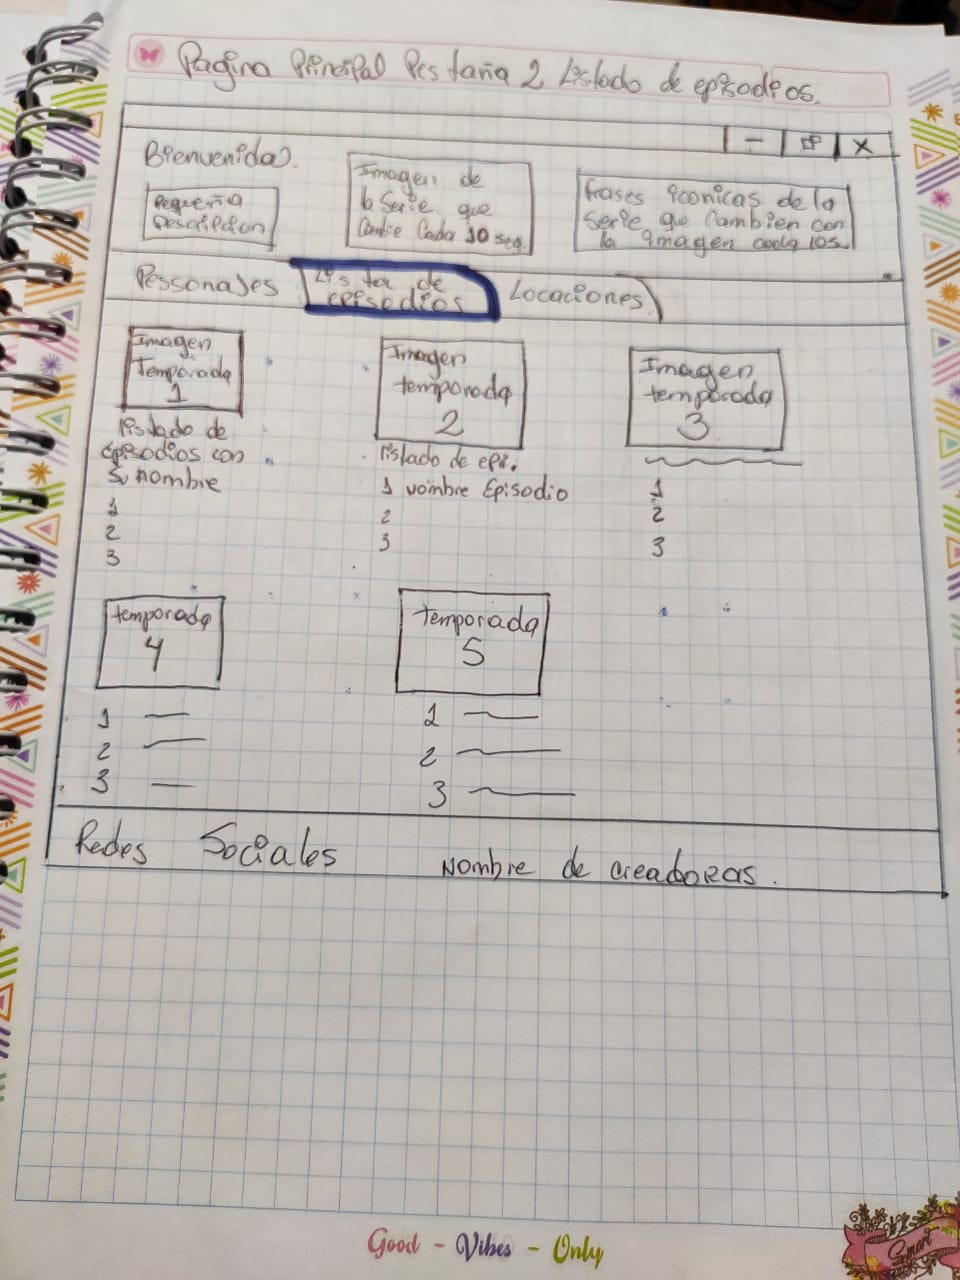 Pagina Principal Pestaña 2 Listado de episodios.
Bienvenidas.
Pequeña
Descripcion
Imagen de
la serie que
Cambie Cada 10 seg.
frases iconicas de la
serie que Cambien con
la imagen cada 10s.
Personajes
Lista de
episodios
Locaciones
Imagen
Temporada
1
listado de
episodios con
su nombre
1
2
3
Imagen
temporada
2
listado de epi.
1 nombre Episodio
2
3
Imagen
temporada
3
1
2
3
temporada
4
1
2
3
temporada
5
1
2
3
Redes Sociales
Nombre de creadoras.
Good - Vibes - Only
Smart